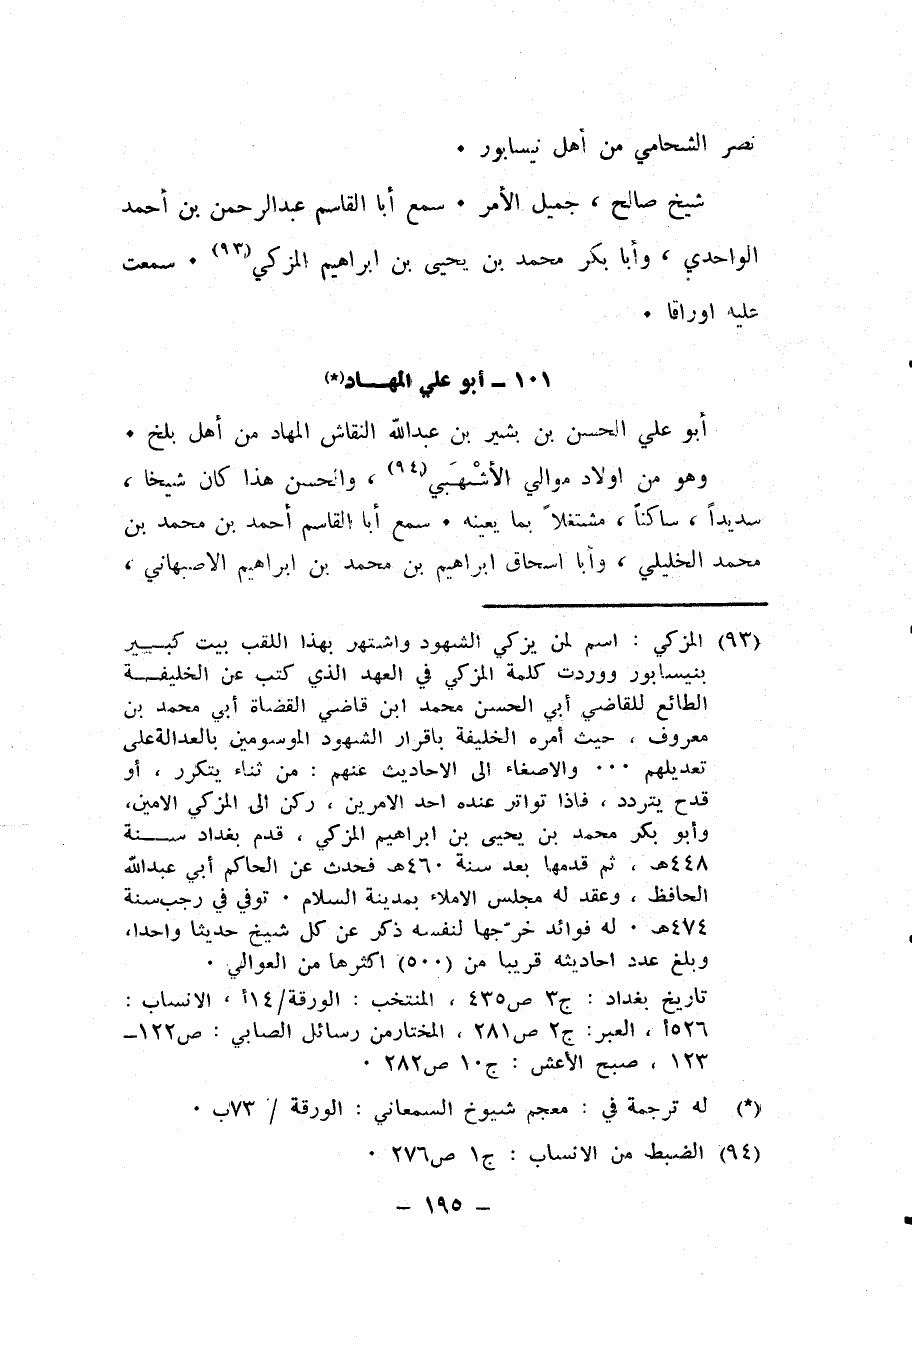 نصر الشحامي من أهل نيسابور ٠
شيخ صالح ، جميل الأمر ٠ سمع أبا القاسم عبدالرحمن بن أحمد
الواحدي ، وأبا بكر محمد بن يحيى بن ابراهيم المزكي(٩٣) ٠ سمعت
عليه اوراقا ٠
١٠١ ــ أبو علي المهـــاد(*)
أبو علي الحسن بن بشير بن عبدالله النقاش المهاد من أهل بلخ ٠
وهو من اولاد موالي الأشْهَبي(٩٤) ، والحسن هذا كان شيخا ،
سديداً ، ساكناً ، مشتغلاً بما يعينه ٠ سمع أبا القاسم أحمد بن محمد بن
محمد الخليلي ، وأبا اسحاق ابراهيم بن محمد بن ابراهيم الاصبهاني ،
(٩٣) المزكي : اسم لمن يزكي الشهود واشتهر بهذا اللقب بيت كبـــير
بنيسابور ووردت كلمة المزكي في العهد الذي كتب عن الخليفـــة
الطائع للقاضي أبي الحسن محمد ابن قاضي القضاة أبي محمد بن
معروف ، حيث أمره الخليفة باقرار الشهود الموسومين بالعدالةعلى
تعديلهم ٠٠٠ والاصغاء الى الاحاديث عنهم : من ثناء يتكرر ، أو
قدح يتردد ، فاذا تواتر عنده احد الامرين ، ركن الى المزكي الامين،
وأبو بكر محمد بن يحيى بن ابراهيم المزكي ، قدم بغداد ســـنة
٤٤٨هـ ، ثم قدمها بعد سنة ٤٦٠هـ فحدث عن الحاكم أبي عبدالله
الحافظ ، وعقد له مجلس الاملاء بمدينة السلام ٠ توفي في رجب‌سنة
٤٧٤هـ ٠ له فوائد خرّجها لنفسه ذكر عن كل شيخ حديثا واحدا،
وبلغ عدد احاديثه قريبا من (٥٠٠) اكثرها من العوالي ٠
تاريخ بغداد : ج٣ ص٤٣٥ ، المنتخب : الورقة/١٤أ ، الانساب :
٥٢٦أ ، العبر: ج٢ ص٢٨١ ، المختارمن رسائل الصابي : ص١٢٢ــ
١٢٣ ، صبح الأعش : ج١٠ ص٢٨٢ ٠
(*) له ترجمة في : معجم شيوخ السمعاني : الورقة / ٧٣ب ٠
(٩٤) الضبط من الانساب : ج١ ص٢٧٦ ٠
ــ ١٩٥ ــ